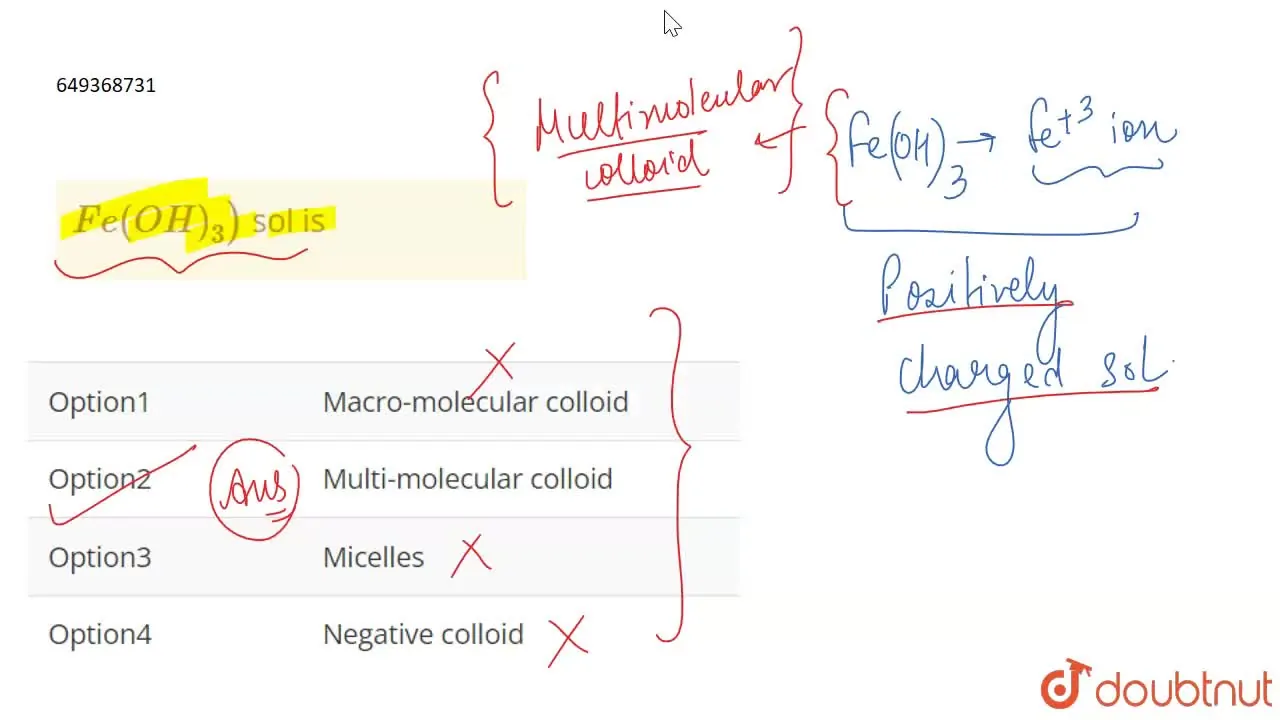 649368731
Multimolecular
colloid
Fe(OH)3 → Fe+3 ion
Fe(OH)3) sol is
Positively
charged sol.
Option1 Macro-molecular colloid
Option2 Ans Multi-molecular colloid
Option3 Micelles
Option4 Negative colloid
doubtnut